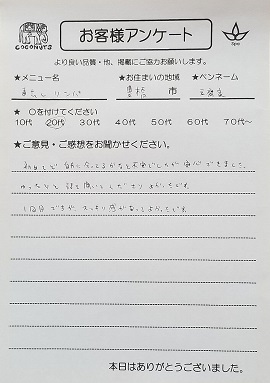 COCONUTS
お客様アンケート
Spa
より良い品質・他、掲載にご協力お願いします。
★メニュー名 ★お住まいの地域 ★ペンネーム
リンパ 豊橋 市
★ ○を付けてください
10代 20代 30代 40代 50代 60代 70代～
★ご意見・ご感想をお聞かせください。
初めてで 自分に合ってるかなと不安でしたが 安心できました。
ゆったりと 話を聞いて くださり よかったです
1回目ですが スッキリ感があってよかったです
本日はありがとうございました。